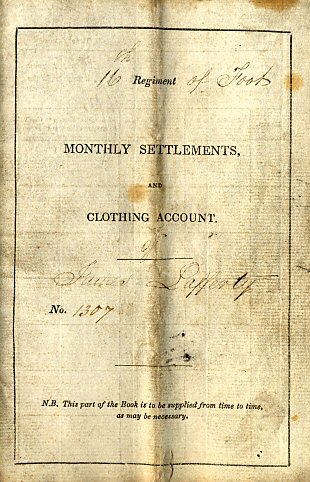 16th Regiment of Foot
MONTHLY SETTLEMENTS,
AND
CLOTHING ACCOUNT.
of
James Lafferty
No. 1307
N.B. This part of the Book is to be supplied from time to time,
as may be necessary.